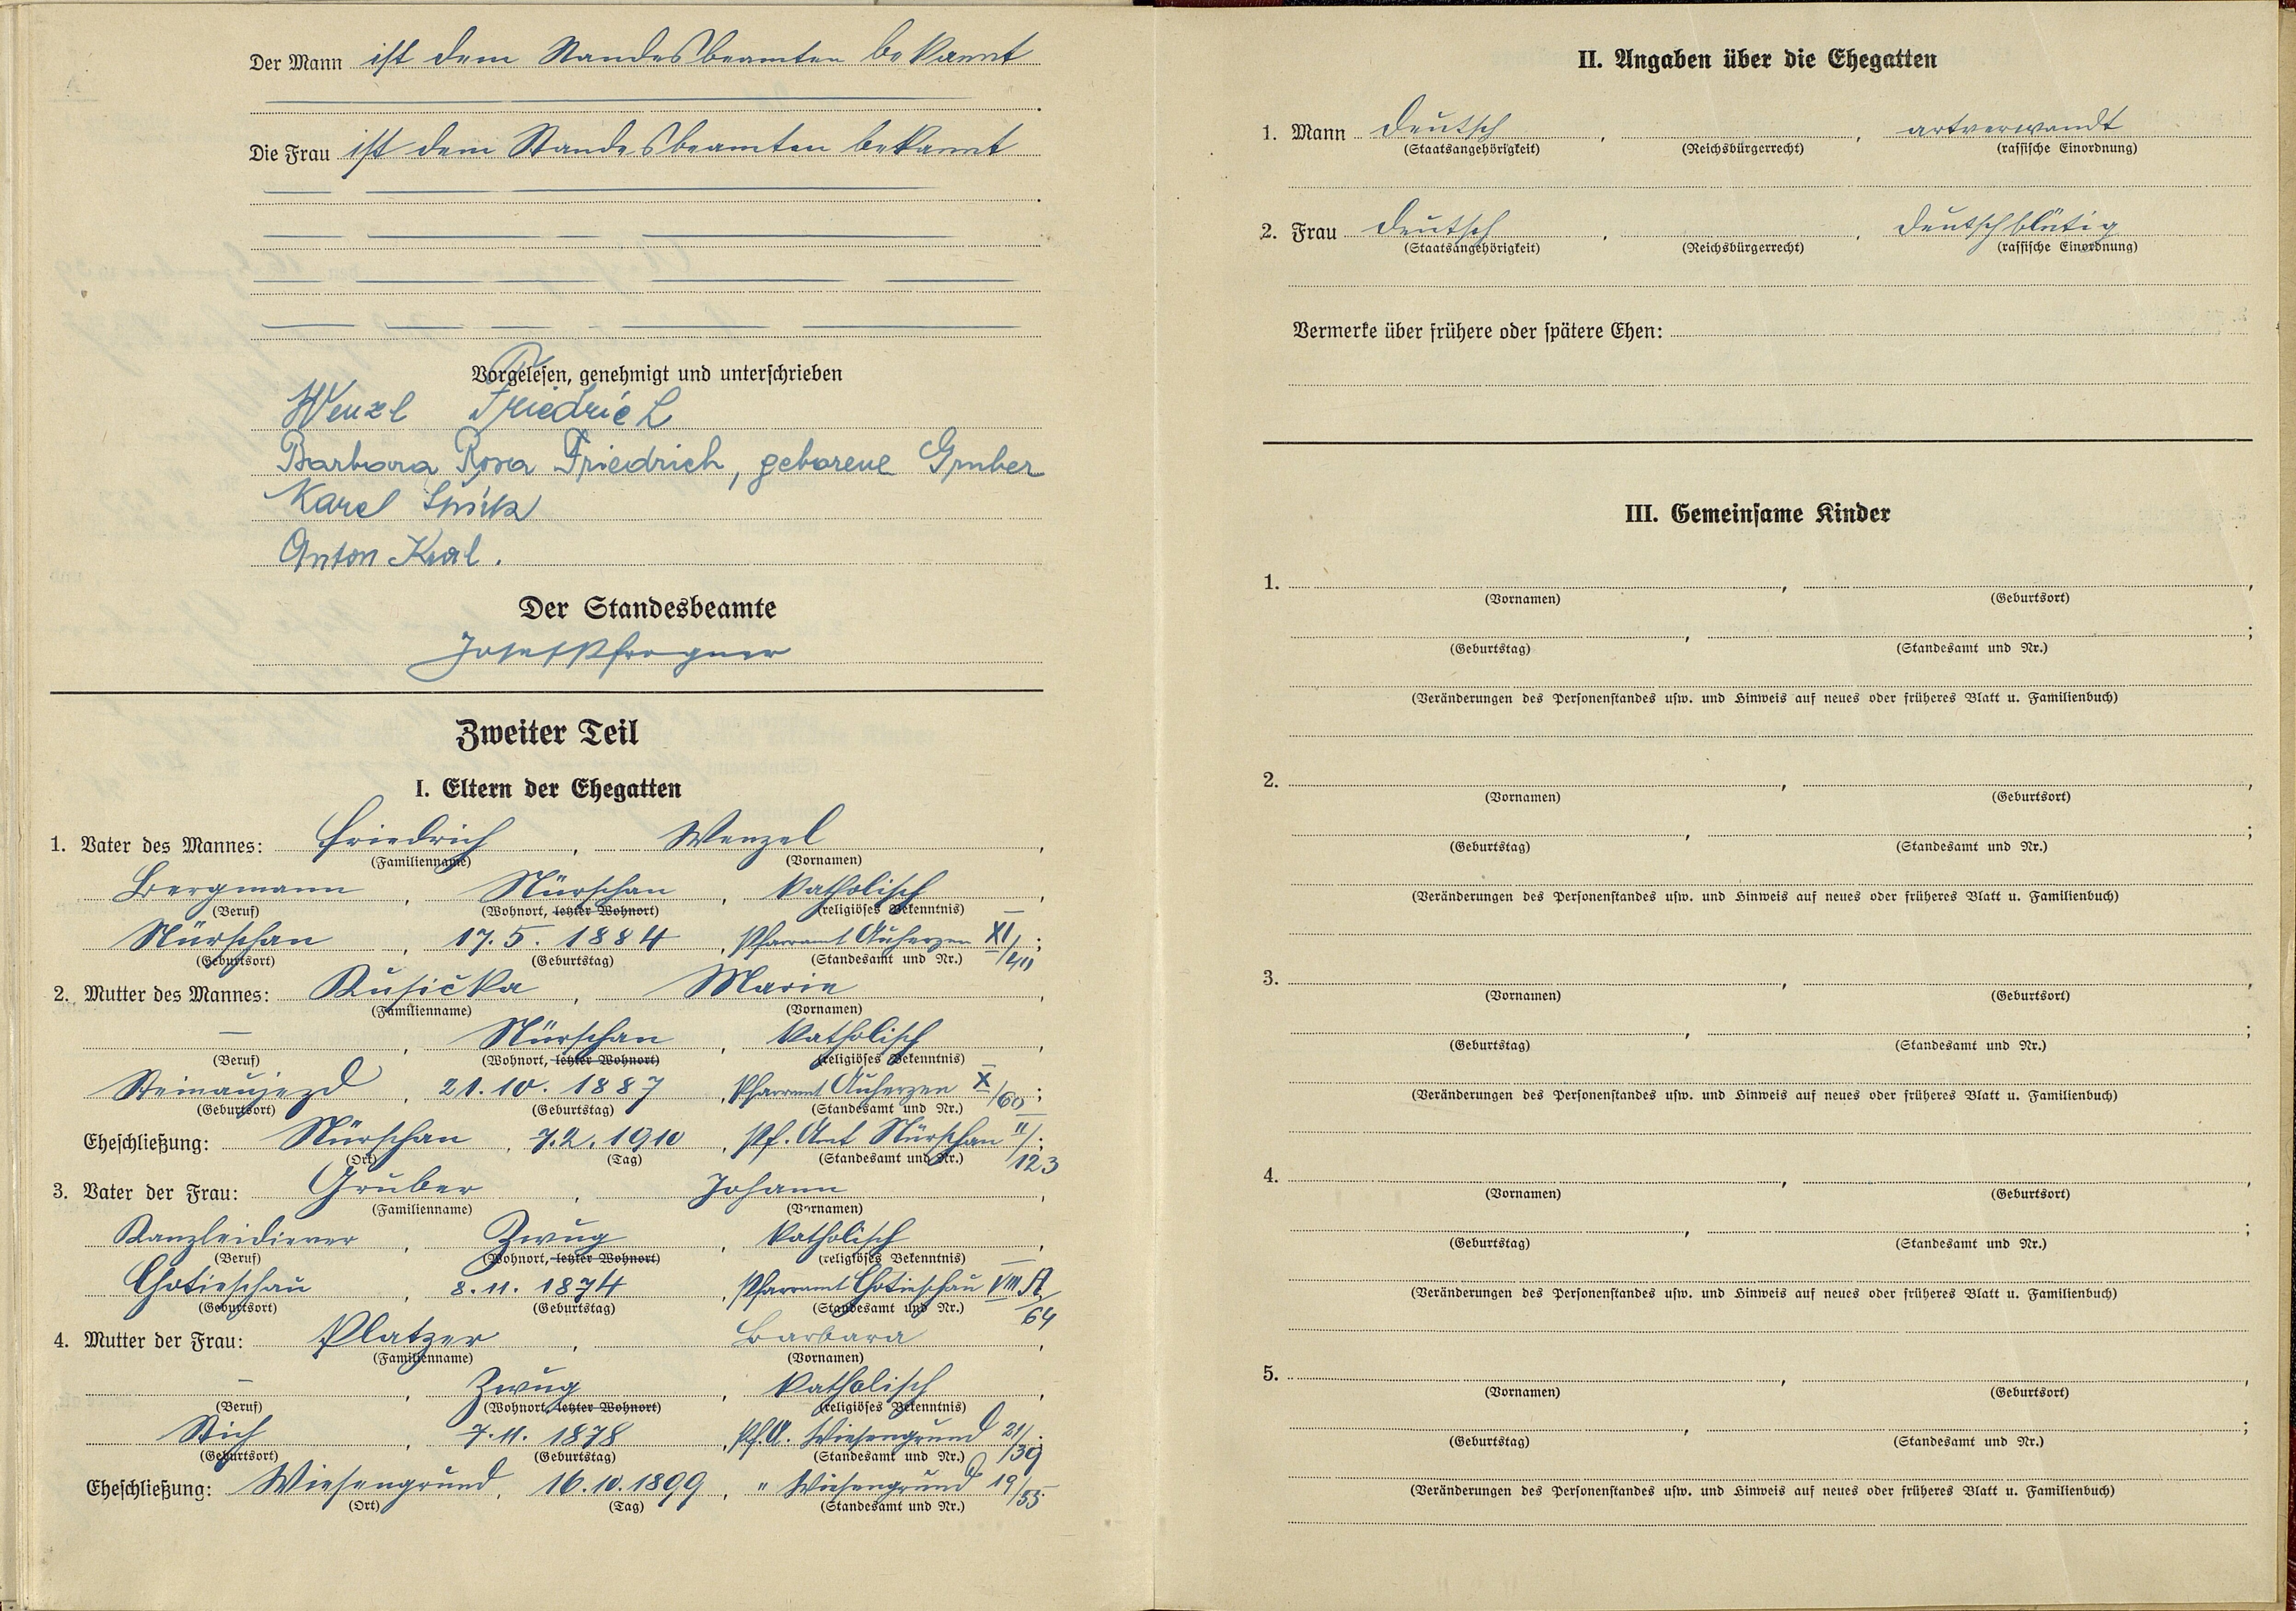 Der Mann ist dem Standesbeamten bekannt
Die Frau ist dem Standesbeamten bekannt
Vorgelesen, genehmigt und unterschrieben
Wenzl Friedrich
Barbara Rosa Friedrich, geborene Gruber
Karel
Anton Kral.
Der Standesbeamte
Josef Pfrogner
Zweiter Teil
I. Eltern der Ehegatten
1. Vater des Mannes: Friedrich, Wenzel,
(Familienname) (Vornamen)
Bergmann, Nürschan, katholisch,
(Beruf) (Wohnort, letzter Wohnort) (religiöses Bekenntnis)
Nürschan, 17.5.1884, Pfarramt Auherzen XI/40;
(Geburtsort) (Geburtstag) (Standesamt und Nr.)
2. Mutter des Mannes: Rusička, Marie,
(Familienname) (Vornamen)
—, Nürschan, katholisch,
(Beruf) (Wohnort, letzter Wohnort) (religiöses Bekenntnis)
Steinaujezd, 21.10.1887, Pfarramt Auherzen X/60;
(Geburtsort) (Geburtstag) (Standesamt und Nr.)
Eheschließung: Nürschan, 7.2.1910, Pf. Amt Nürschan II/123;
(Ort) (Tag) (Standesamt und Nr.)
3. Vater der Frau: Gruber, Johann,
(Familienname) (Vornamen)
Kanzleidiener, Zwug, katholisch,
(Beruf) (Wohnort, letzter Wohnort) (religiöses Bekenntnis)
Chotieschau, 8.11.1874, Pfarramt Chotieschau VIII A/64
(Geburtsort) (Geburtstag) (Standesamt und Nr.)
4. Mutter der Frau: Platzer, Barbara,
(Familienname) (Vornamen)
—, Zwug, katholisch,
(Beruf) (Wohnort, letzter Wohnort) (religiöses Bekenntnis)
Stich, 7.11.1878, Pf.A. Wiesengrund 21/39;
(Geburtsort) (Geburtstag) (Standesamt und Nr.)
Eheschließung: Wiesengrund, 16.10.1899, " Wiesengrund 19/55
(Ort) (Tag) (Standesamt und Nr.)
II. Angaben über die Ehegatten
1. Mann deutsch, , artverwandt
(Staatsangehörigkeit) (Reichsbürgerrecht) (rassische Einordnung)
2. Frau deutsch, , deutschblütig
(Staatsangehörigkeit) (Reichsbürgerrecht) (rassische Einordnung)
Vermerke über frühere oder spätere Ehen:
III. Gemeinsame Kinder
1. , ,
(Vornamen) (Geburtsort)
, ;
(Geburtstag) (Standesamt und Nr.)
(Veränderungen des Personenstandes usw. und Hinweis auf neues oder früheres Blatt u. Familienbuch)
2. , ,
(Vornamen) (Geburtsort)
, ;
(Geburtstag) (Standesamt und Nr.)
(Veränderungen des Personenstandes usw. und Hinweis auf neues oder früheres Blatt u. Familienbuch)
3. , ,
(Vornamen) (Geburtsort)
, ;
(Geburtstag) (Standesamt und Nr.)
(Veränderungen des Personenstandes usw. und Hinweis auf neues oder früheres Blatt u. Familienbuch)
4. , ,
(Vornamen) (Geburtsort)
, ;
(Geburtstag) (Standesamt und Nr.)
(Veränderungen des Personenstandes usw. und Hinweis auf neues oder früheres Blatt u. Familienbuch)
5. , ,
(Vornamen) (Geburtsort)
, ;
(Geburtstag) (Standesamt und Nr.)
(Veränderungen des Personenstandes usw. und Hinweis auf neues oder früheres Blatt u. Familienbuch)